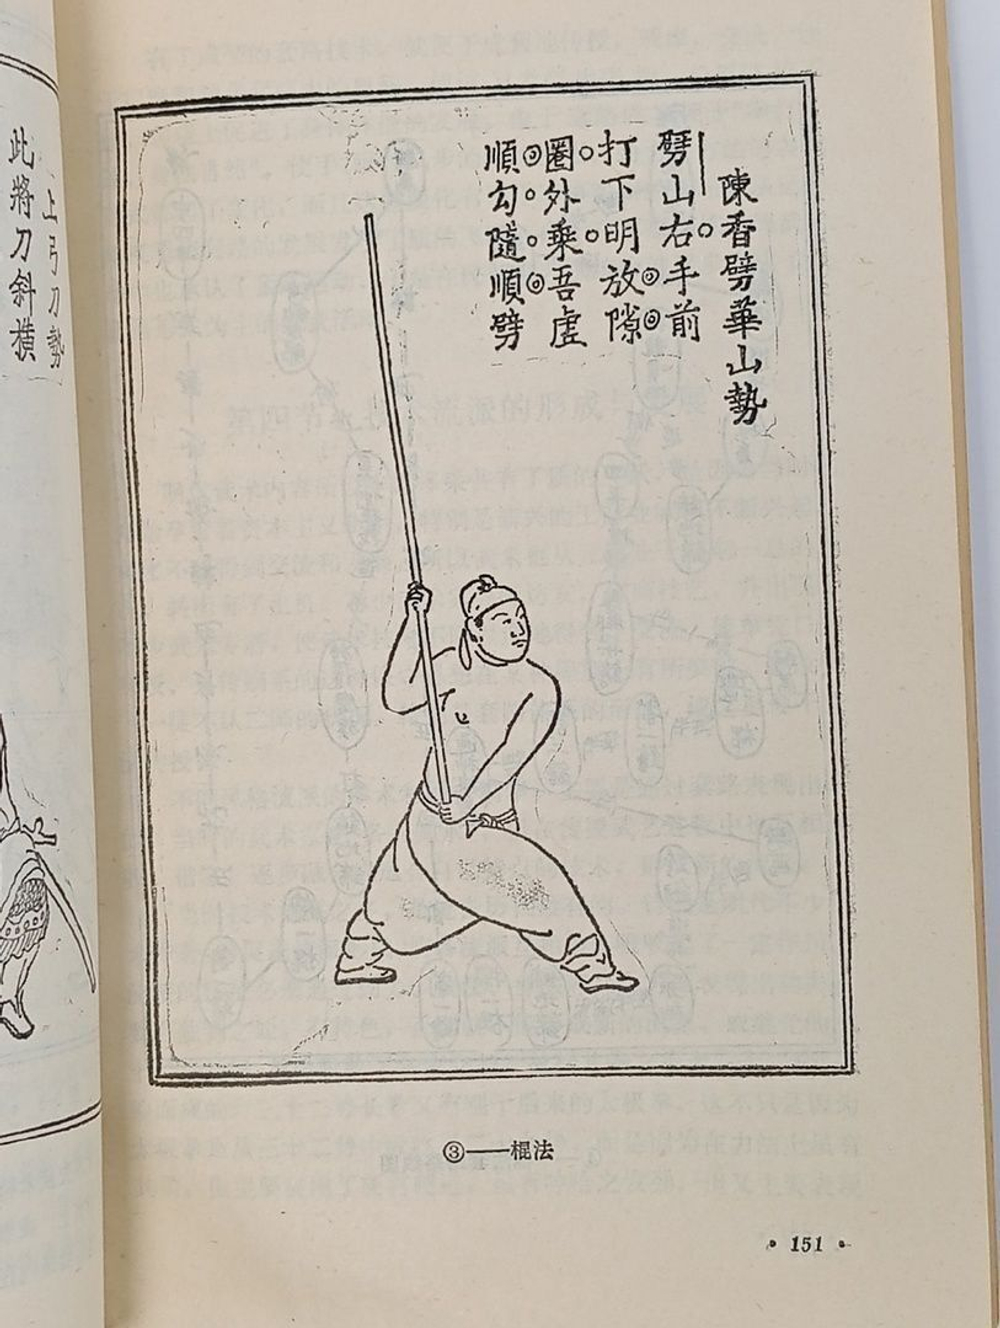 上弓刀勢
此將刀斜橫
陳香劈華山勢
劈山右手前
打下明放隙
圈外乘吾虛
順勾隨順劈
③——棍法
• 151 •